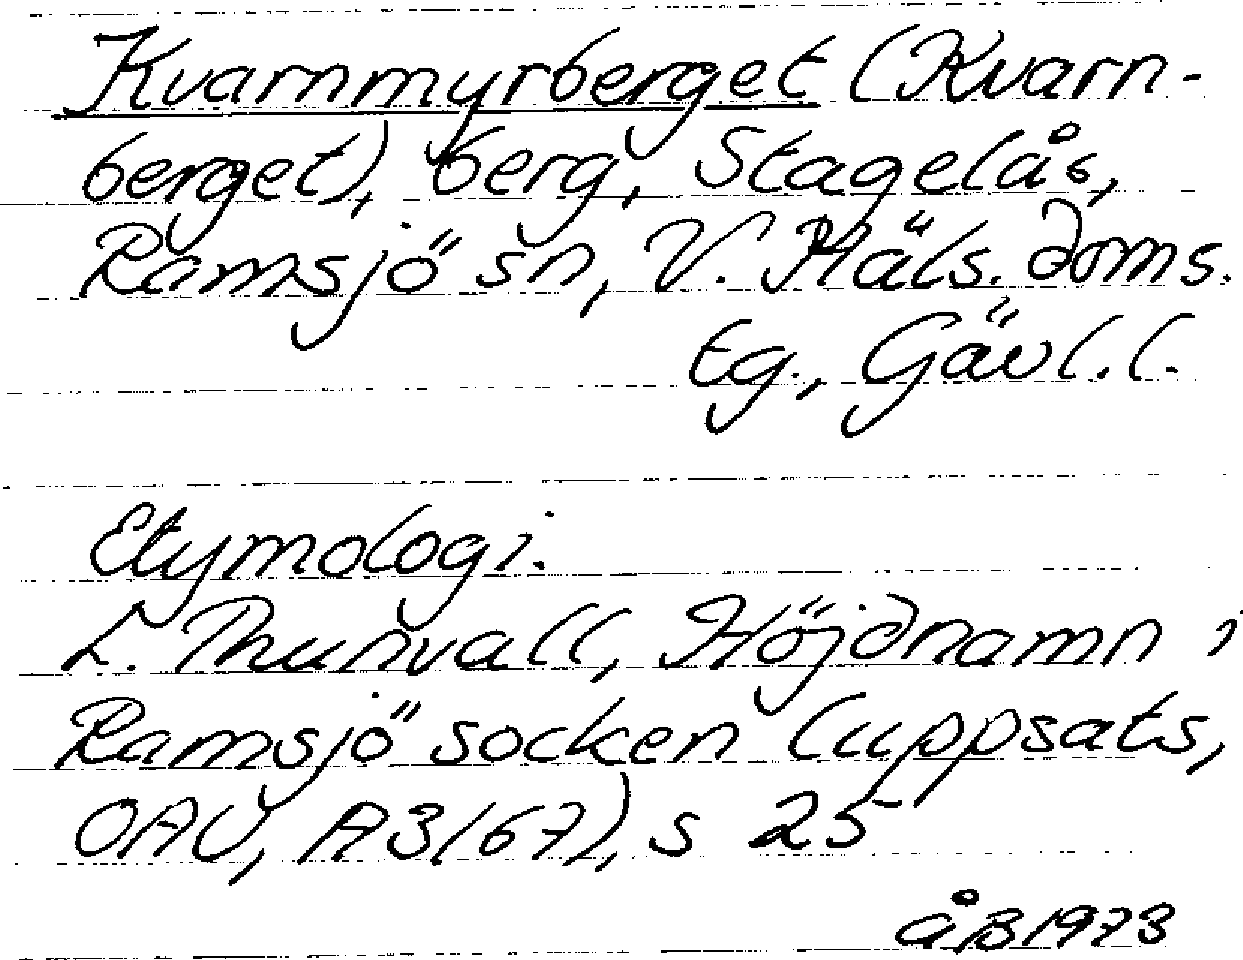 Kvarnmyrberget (Kvarn-
berget), berg, Stagelås,
Ramsjö sn, V. Häls. doms.
tg., Gävl. l.
Etymologi.
L. Thunvall, Höjdnamn i
Ramsjö socken (uppsats,
OAU, A3/67), s 25
åB 1973